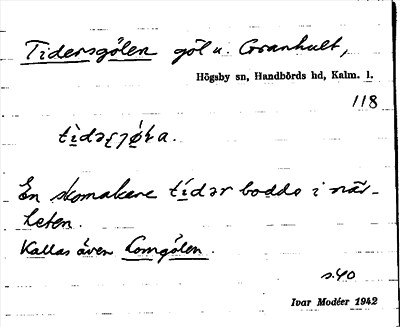 Tidersgölen göl u. Granhult,
Högsby sn, Handbörds hd, Kalm. l.
118
En skomakare tídər bodde i när-
heten.
Kallas även Komgölen.
s. 40
Ivar Modéer 1942